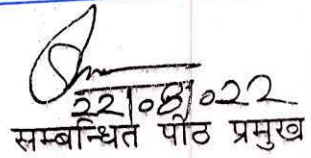 22|08|022
सम्बन्धित पीठ प्रमुख